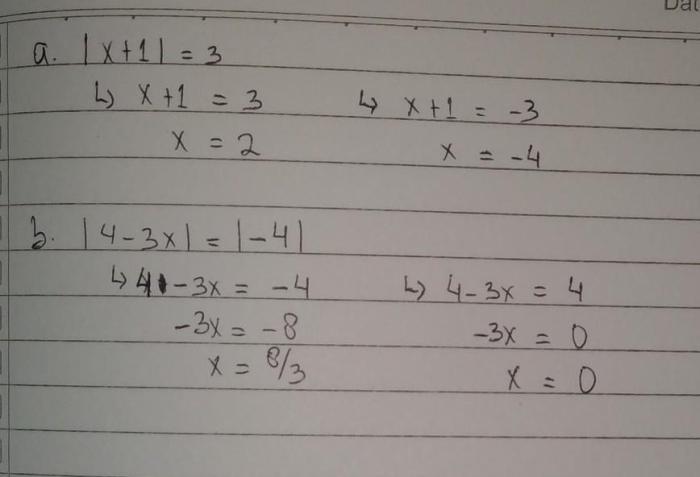 Dat
a. |x+1| = 3
↳ x+1 = 3 ↳ x+1 = -3
x = 2 x = -4
b. |4-3x| = |-4|
↳ 4 -3x = -4 ↳ 4-3x = 4
-3x = -8 -3x = 0
x = 8/3 x = 0